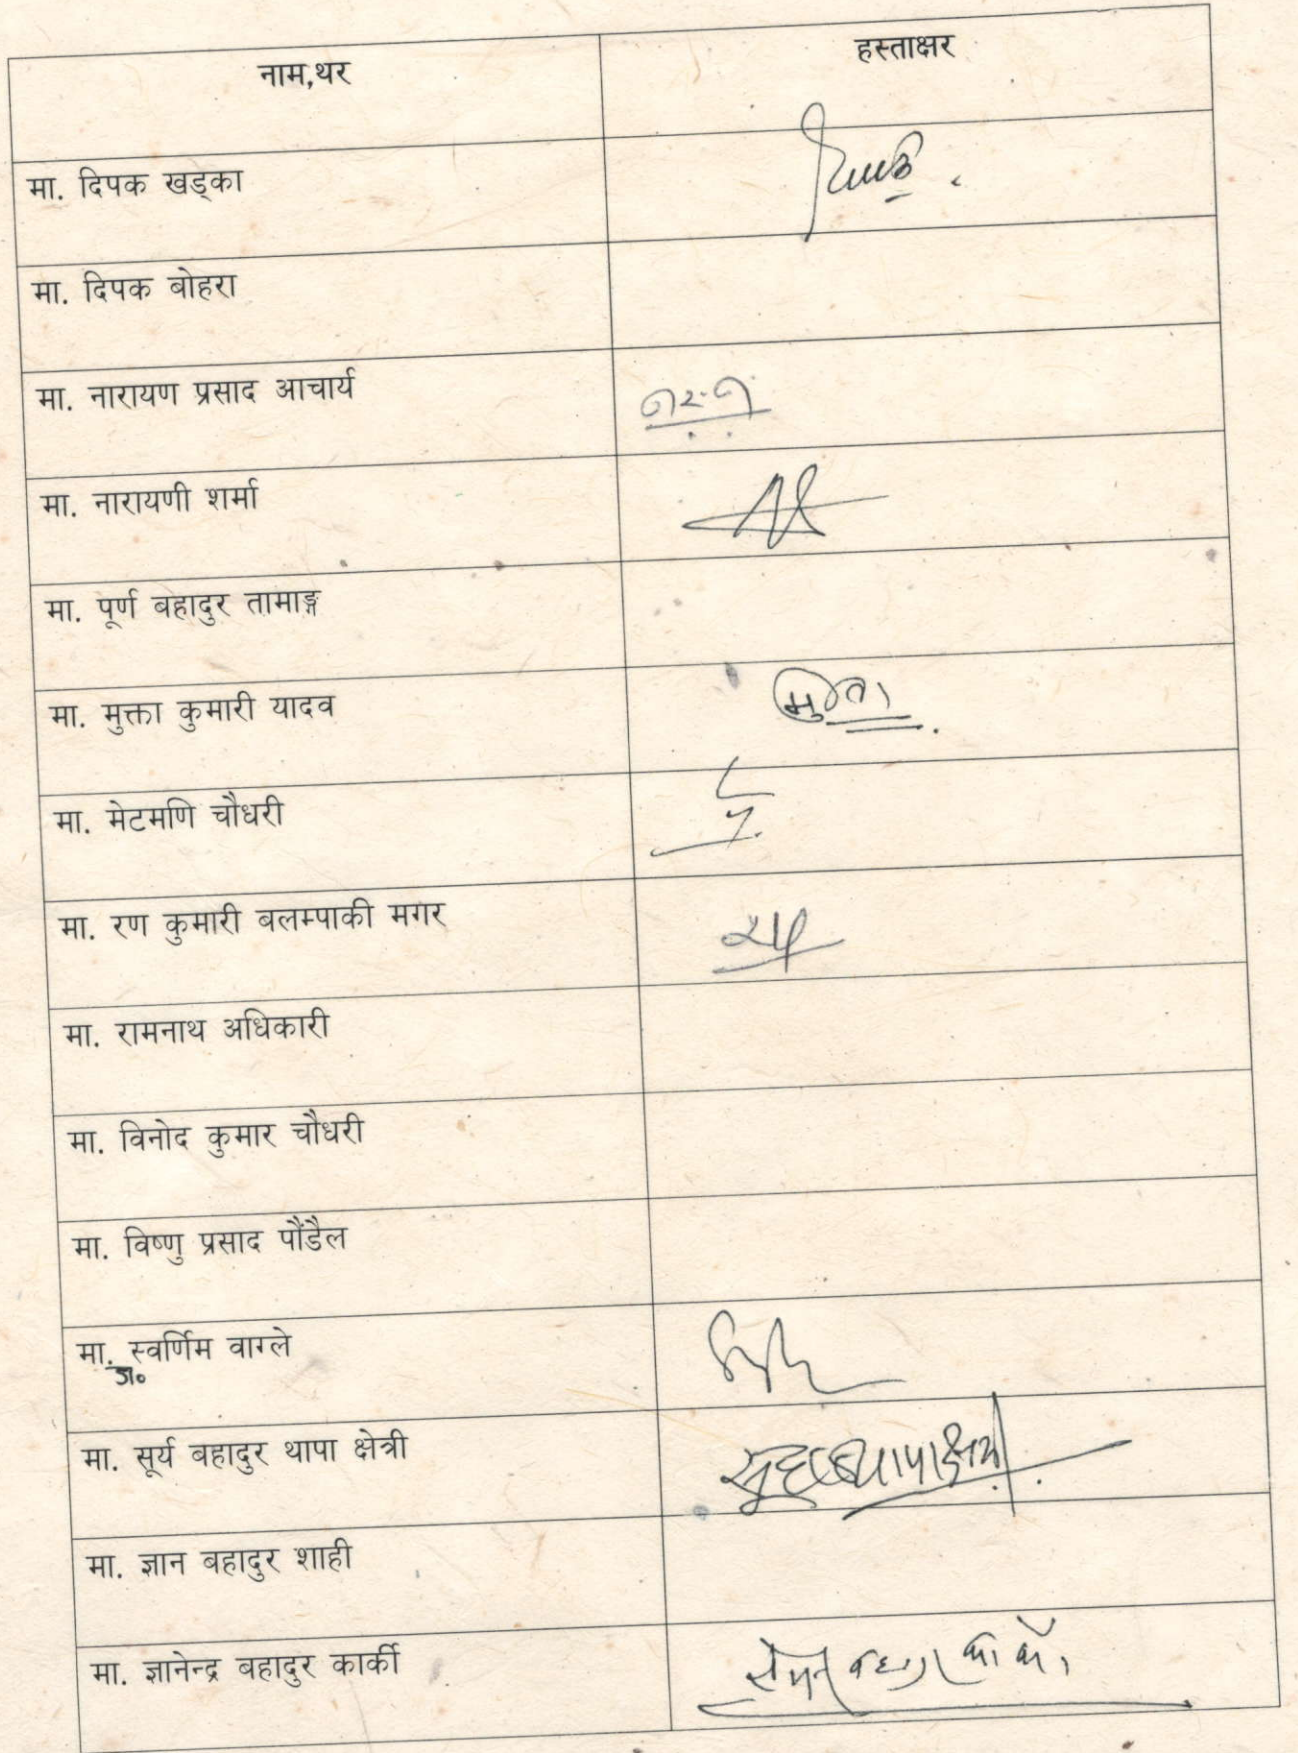 नाम,थर
हस्ताक्षर
मा. दिपक खड्का
मा. दिपक बोहरा
मा. नारायण प्रसाद आचार्य
मा. नारायणी शर्मा
मा. पूर्ण बहादुर तामाङ्ग
मा. मुक्ता कुमारी यादव
मा. मेटमणि चौधरी
मा. रण कुमारी बलम्पाकी मगर
मा. रामनाथ अधिकारी
मा. विनोद कुमार चौधरी
मा. विष्णु प्रसाद पौंडैल
मा. स्वर्णिम वाग्ले
मा. सूर्य बहादुर थापा क्षेत्री
मा. ज्ञान बहादुर शाही
मा. ज्ञानेन्द्र बहादुर कार्की